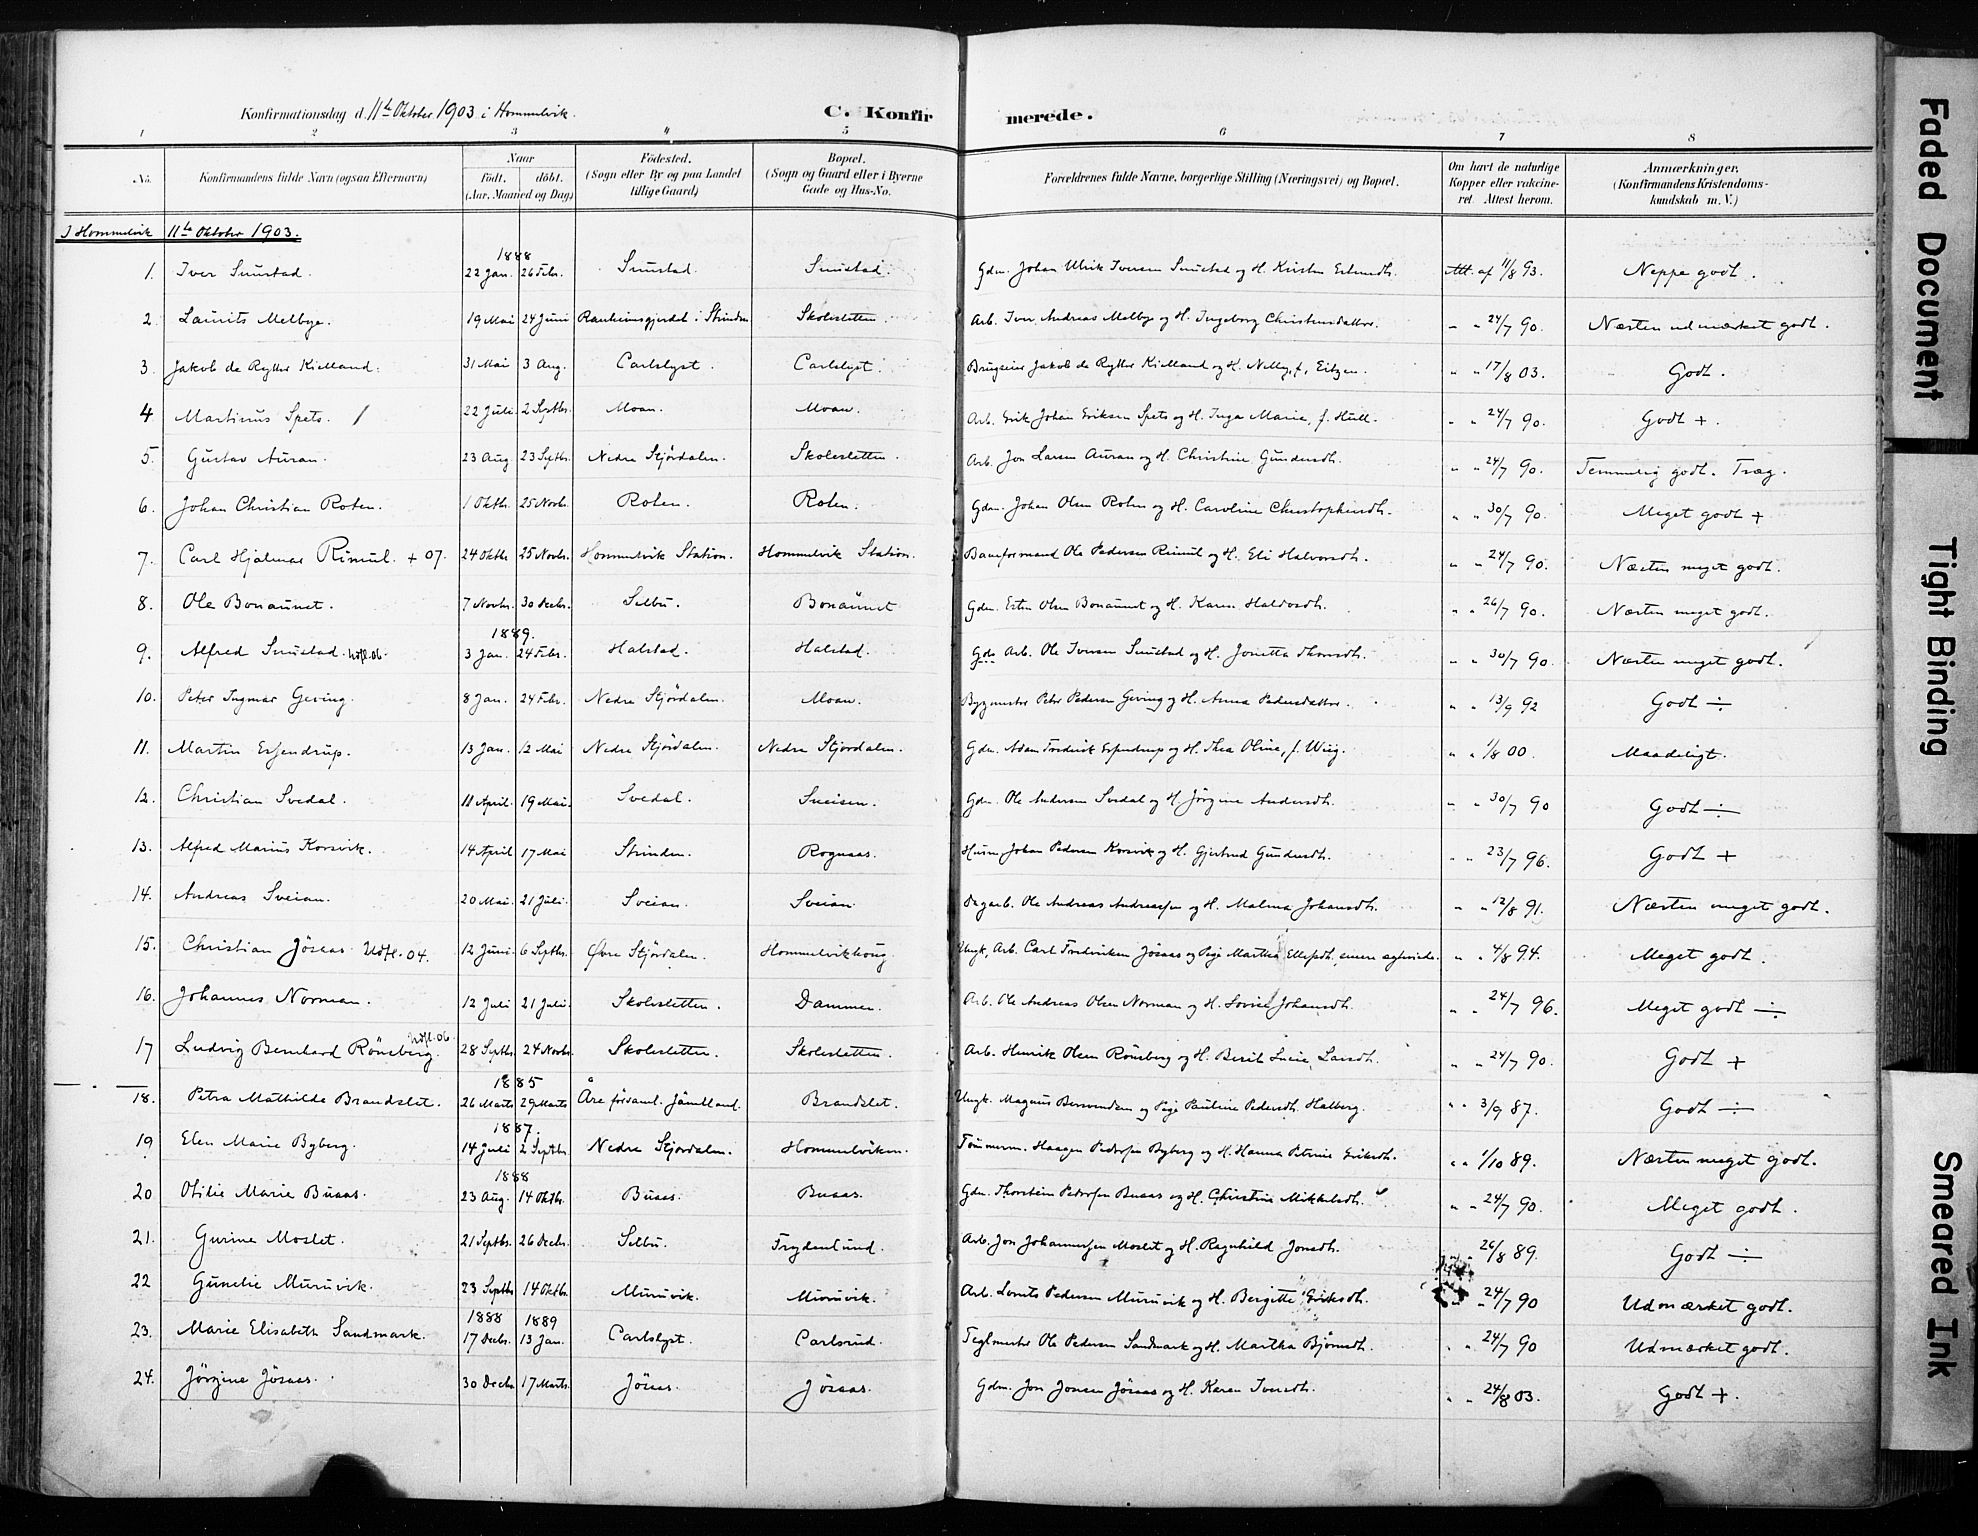 Konfirmationsdag d. 11te Oktober 1903 i Hommelvik.
C. Konfirmerede.
1 2 3 4 5 6 7 8
No. Konfirmandens fulde Navn (ogsaa Efternavn) Naar Födt. döbt. (Aar, Maaned og Dag) Födested. (Sogn eller By og paa Landet tillige Gaard) Bopæl. (Sogn og Gaard eller i Byerne Gade og Hus-No. Forældrenes fulde Navne, borgerlige Stilling (Næringsvei) og Bopæl. Om havt de naturlige Kopper eller vakcineret. Attest herom. Anmærkninger. (Konfirmandens Kristendomskundskab m. V.)
I Hommelvik 11te Oktober 1903.
1888
1. Iver Smistad. 22 Jan. 26 Febr. Smistad. Smistad. Gdm. Johan Ulrik Iversen Smistad og H. Kirsten Estensdt. Att. af 11/8 93. Neppe godt.
2. Laurits Melbye. 19 Mai 24 Juni Ranheimsgjerdet i Strinden Skolesletten. Arb. Iver Andreas Melbye og H. Ingeborg Christensdatter. " " 24/7 90. Næsten udmærket godt.
3. Jakob de Rytter Kielland. 31 Mai 3 Aug. Carlslyst. Carlslyst. Brugseier Jakob de Rytter Kielland og H. Nelly, f. Eitzen. " " 17/8 03. Godt.
4 Martinus Spets. / 22 Juli 2 Septbr. Moan. Moan. Arb. Erik Johan Eriksen Spets og H. Inga Marie, f. Hull. " " 24/7 90. Godt +.
5. Gustav Auran. 23 Aug. 23 Septbr. Nedre Stjördalen. Skolesletten. Arb. Jon Larsen Auran og H. Christine Gundersdt. " " 24/7 90. Temmelig godt. Træg.
6. Johan Christian Roten. 1 Oktbr. 25 Novbr. Roten. Roten. Gdm. Johan Olsen Roten og H. Caroline Christophersdt. " " 30/7 90. Meget godt +
7. Carl Hjalmar Rimul. + 07. 24 Oktbr. 25 Novbr. Hommelvik Station. Hommelvik Station. Baneformand Ole Pedersen Rimul og H. Eli Halvorsdt. " " 24/7 90. Næsten meget godt.
8. Ole Bonaunet. 7 Novbr. 30 Decbr. Selbu. Bonaunet Gdm. Esten Olsen Bonaunet og H. Karen Haldosdt. " " 26/7 90. Næsten meget godt.
1889.
9. Alfred Smistad. Udfl. 06. 3 Jan. 24 Febr. Halstad. Halstad. Gdm. Arb. Ole Iversen Smistad og H. Jonetta Thomsdt. " " 30/7 90. Næsten meget godt.
10. Peter Ingmar Geving. 8 Jan. 24 Febr. Nedre Stjördalen. Moan. Bygmester Peter Pedersen Geving og H. Anna Pedersdatter. " " 13/9 92 Godt ÷
11. Martin Esfendrup. 13 Jan. 12 Mai Nedre Stjördalen. Nedre Stjördalen. Gdm. Adam Frederik Esfendrup og H. Thea Oline, f. Wiig. " " 1/8 00. Maadeligt.
12. Christian Svedal. 11 April. 19 Mai. Svedal. Sneisen. Gdm. Ole Andersen Svedal og H. Jörgine Andersdt. " " 30/7 90 Godt ÷
13. Alfred Marius Korsvik. 14 April 17 Mai Strinden. Rognaas. Husm. Johan Pedersen Korsvik og H. Gjertrud Gundersdt. " " 23/7 96. Godt +
14. Andreas Sveian. 20 Mai. 21 Juli. Sveian. Sveian. Dagarb. Ole Andreas Andreassen og H. Malena Johansdt. " " 12/8 91. Næsten meget godt.
15. Christian Jösaas. Udfl. 04. 12 Juni 6 Septbr. Øvre Stjördalen. Hommelvikhoug. Ungk., Arb. Carl Frederiksen Jösaas og Pige Martha Ellefsdt., senere ægteviede. " " 4/8 94. Meget godt.
16. Johannes Norman. 12 Juli 21 Juli. Skolesletten. Dammen. Arb. Ole Andreas Olsen Norman og H. Lovise Johansdt. " " 24/7 96. Meget godt ÷
17 Ludvig Bernhard Rönsberg. Udfl. 06. 28 Septbr. 24 Novbr. Skolesletten. Skolesletten. Arb. Henrik Olsen Rönsberg og H. Berit Lucie Larsdt. " " 24/7 90. Godt +
1885
18. Petra Mathilde Brandslet. 26 Marts 29 Marts Åre församl. Jämtland. Brandslet. Ungk. Magnus Bersvendsen og Pige Pauline Pedersdt. Halberg. " " 3/9 87. Godt ÷
1887.
19 Elen Marie Byberg. 14 Juli 2 Septbr. Nedre Stjördalen. Hommelviken. Tömmerm. Haagen Pedersen Byberg og H. Hanna Petrine Eriksdt. " " 1/10 89. Næsten meget godt.
1888
20 Otilie Marie Buaas. 23 Aug. 14 Oktbr. Buaas. Buaas. Gdm. Thorstein Pedersen Buaas og H. Christine Mikkelsdt. " " 24/7 90. Meget godt.
21. Gurine Moslet. 21 Septbr. 26 Decbr. Selbu. Frydenlund. Arb. Jon Johannessen Moslet og H. Ragnhild Jonsdt. 26/8 89. Godt ÷
22 Gunelie Muruvik. 23 Septbr. 14 Oktbr. Muruvik. Muruvik. Arb. Lorents Pedersen Muruvik og H. Bergitte Eriksdt. " 24/7 90 Udmærket godt.
1888 1889
23. Marie Elisabeth Sandmark. 17 Decbr. 13 Jan. Carlslyst. Carlsrud. Teglmester Ole Pedersen Sandmark og H. Martha Bjömsdt. " " 24/7 90 Udmærket godt.
24. Jörgine Jösaas. 30 Decbr. 17 Marts. Jösaas. Jösaas. Gdm. Jon Jonsen Jösaas og H. Karen Iversdt. " " 24/8 03. Godt +.
Faded Document
Tight Binding
Smeared Ink